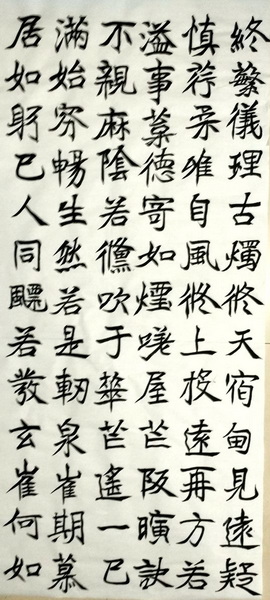 終蘩儀理古燭終天宿甸見遠疑
慎荐柔雖自風從上投遠再方若
溢事藁德寄如煙嘆屋芒阪曠訣
不親麻陰若儻吹于華芒遙一已
滿始容暢生然若是軔泉崔期慕
居如躬已人同飃若發玄崔何如